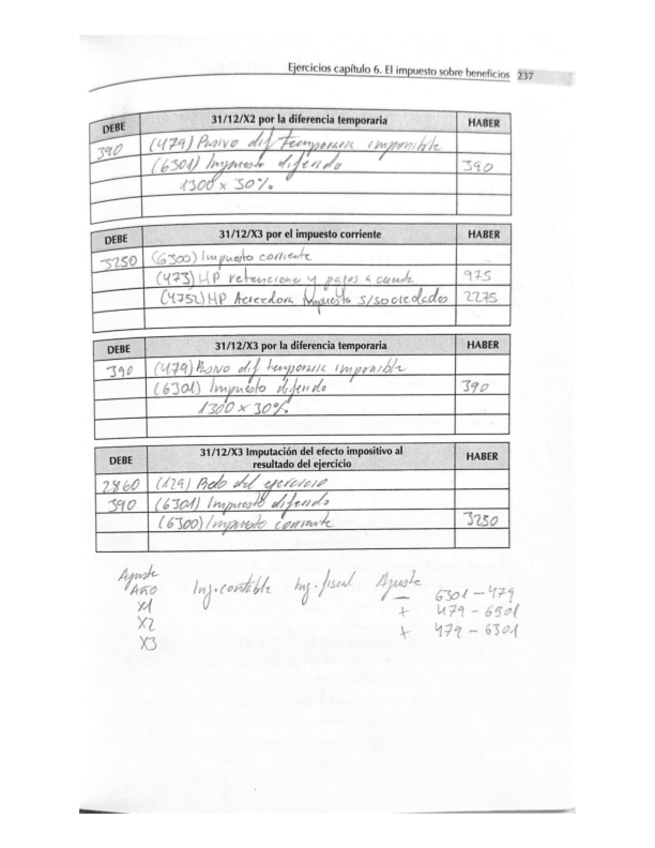 Ejercicios capítulo 6. El impuesto sobre beneficios 237
DEBE 31/12/X2 por la diferencia temporaria HABER
390 (479) Pasivo dif temporaria imponible
(6301) Impuesto diferido 390
1300 x 30%
DEBE 31/12/X3 por el impuesto corriente HABER
3250 (6300) Impuesto corriente
(473) HP retenciones y pagos a cuenta 975
(4752) HP Acreedora impuesto s/sociedades 2275
DEBE 31/12/X3 por la diferencia temporaria HABER
390 (479) Pasivo dif temporaria imponible
(6301) Impuesto diferido 390
1300 x 30%
DEBE 31/12/X3 Imputación del efecto impositivo al
resultado del ejercicio HABER
2860 (129) Rdo del ejercicio
390 (6301) Impuesto diferido
(6300) Impuesto corriente 3250
Ajuste
AÑO Ing. contable Ing. fiscal Ajuste
X1 — 6301 - 479
X2 + 479 - 6301
X3 + 479 - 6301